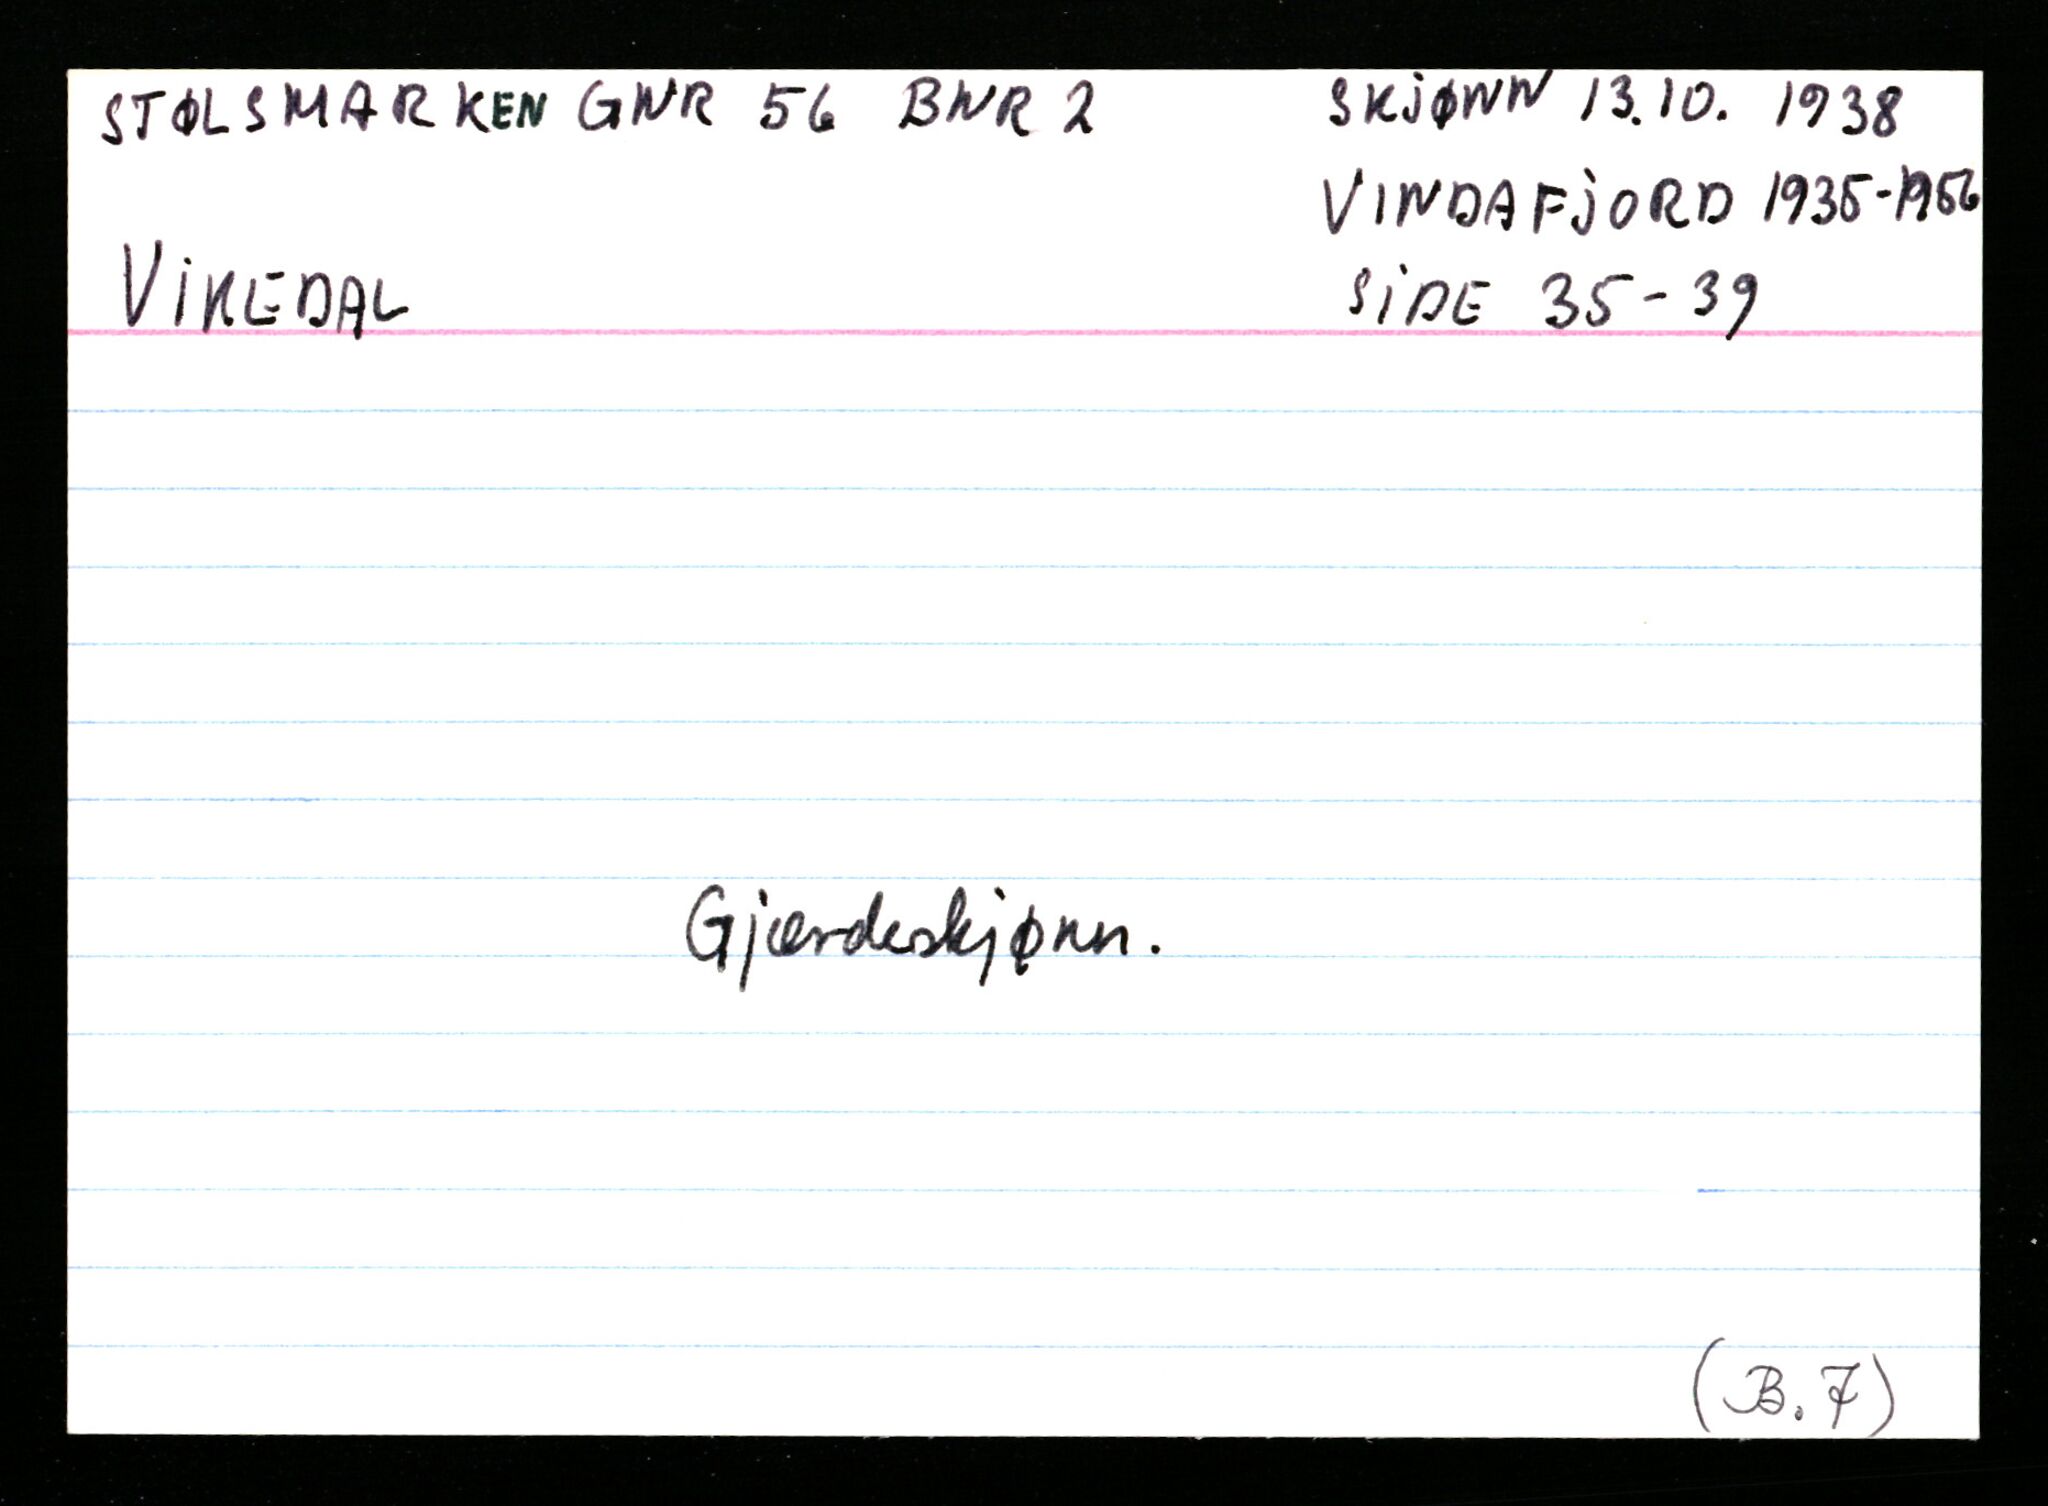 STØLSMARKEN GNR 56 BNR 2
SKJØNN 13.10. 1938
VINDAFJORD 1935-1956
VIKEDAL
SIDE 35-39
Gjærdeskjønn.
(B.7)